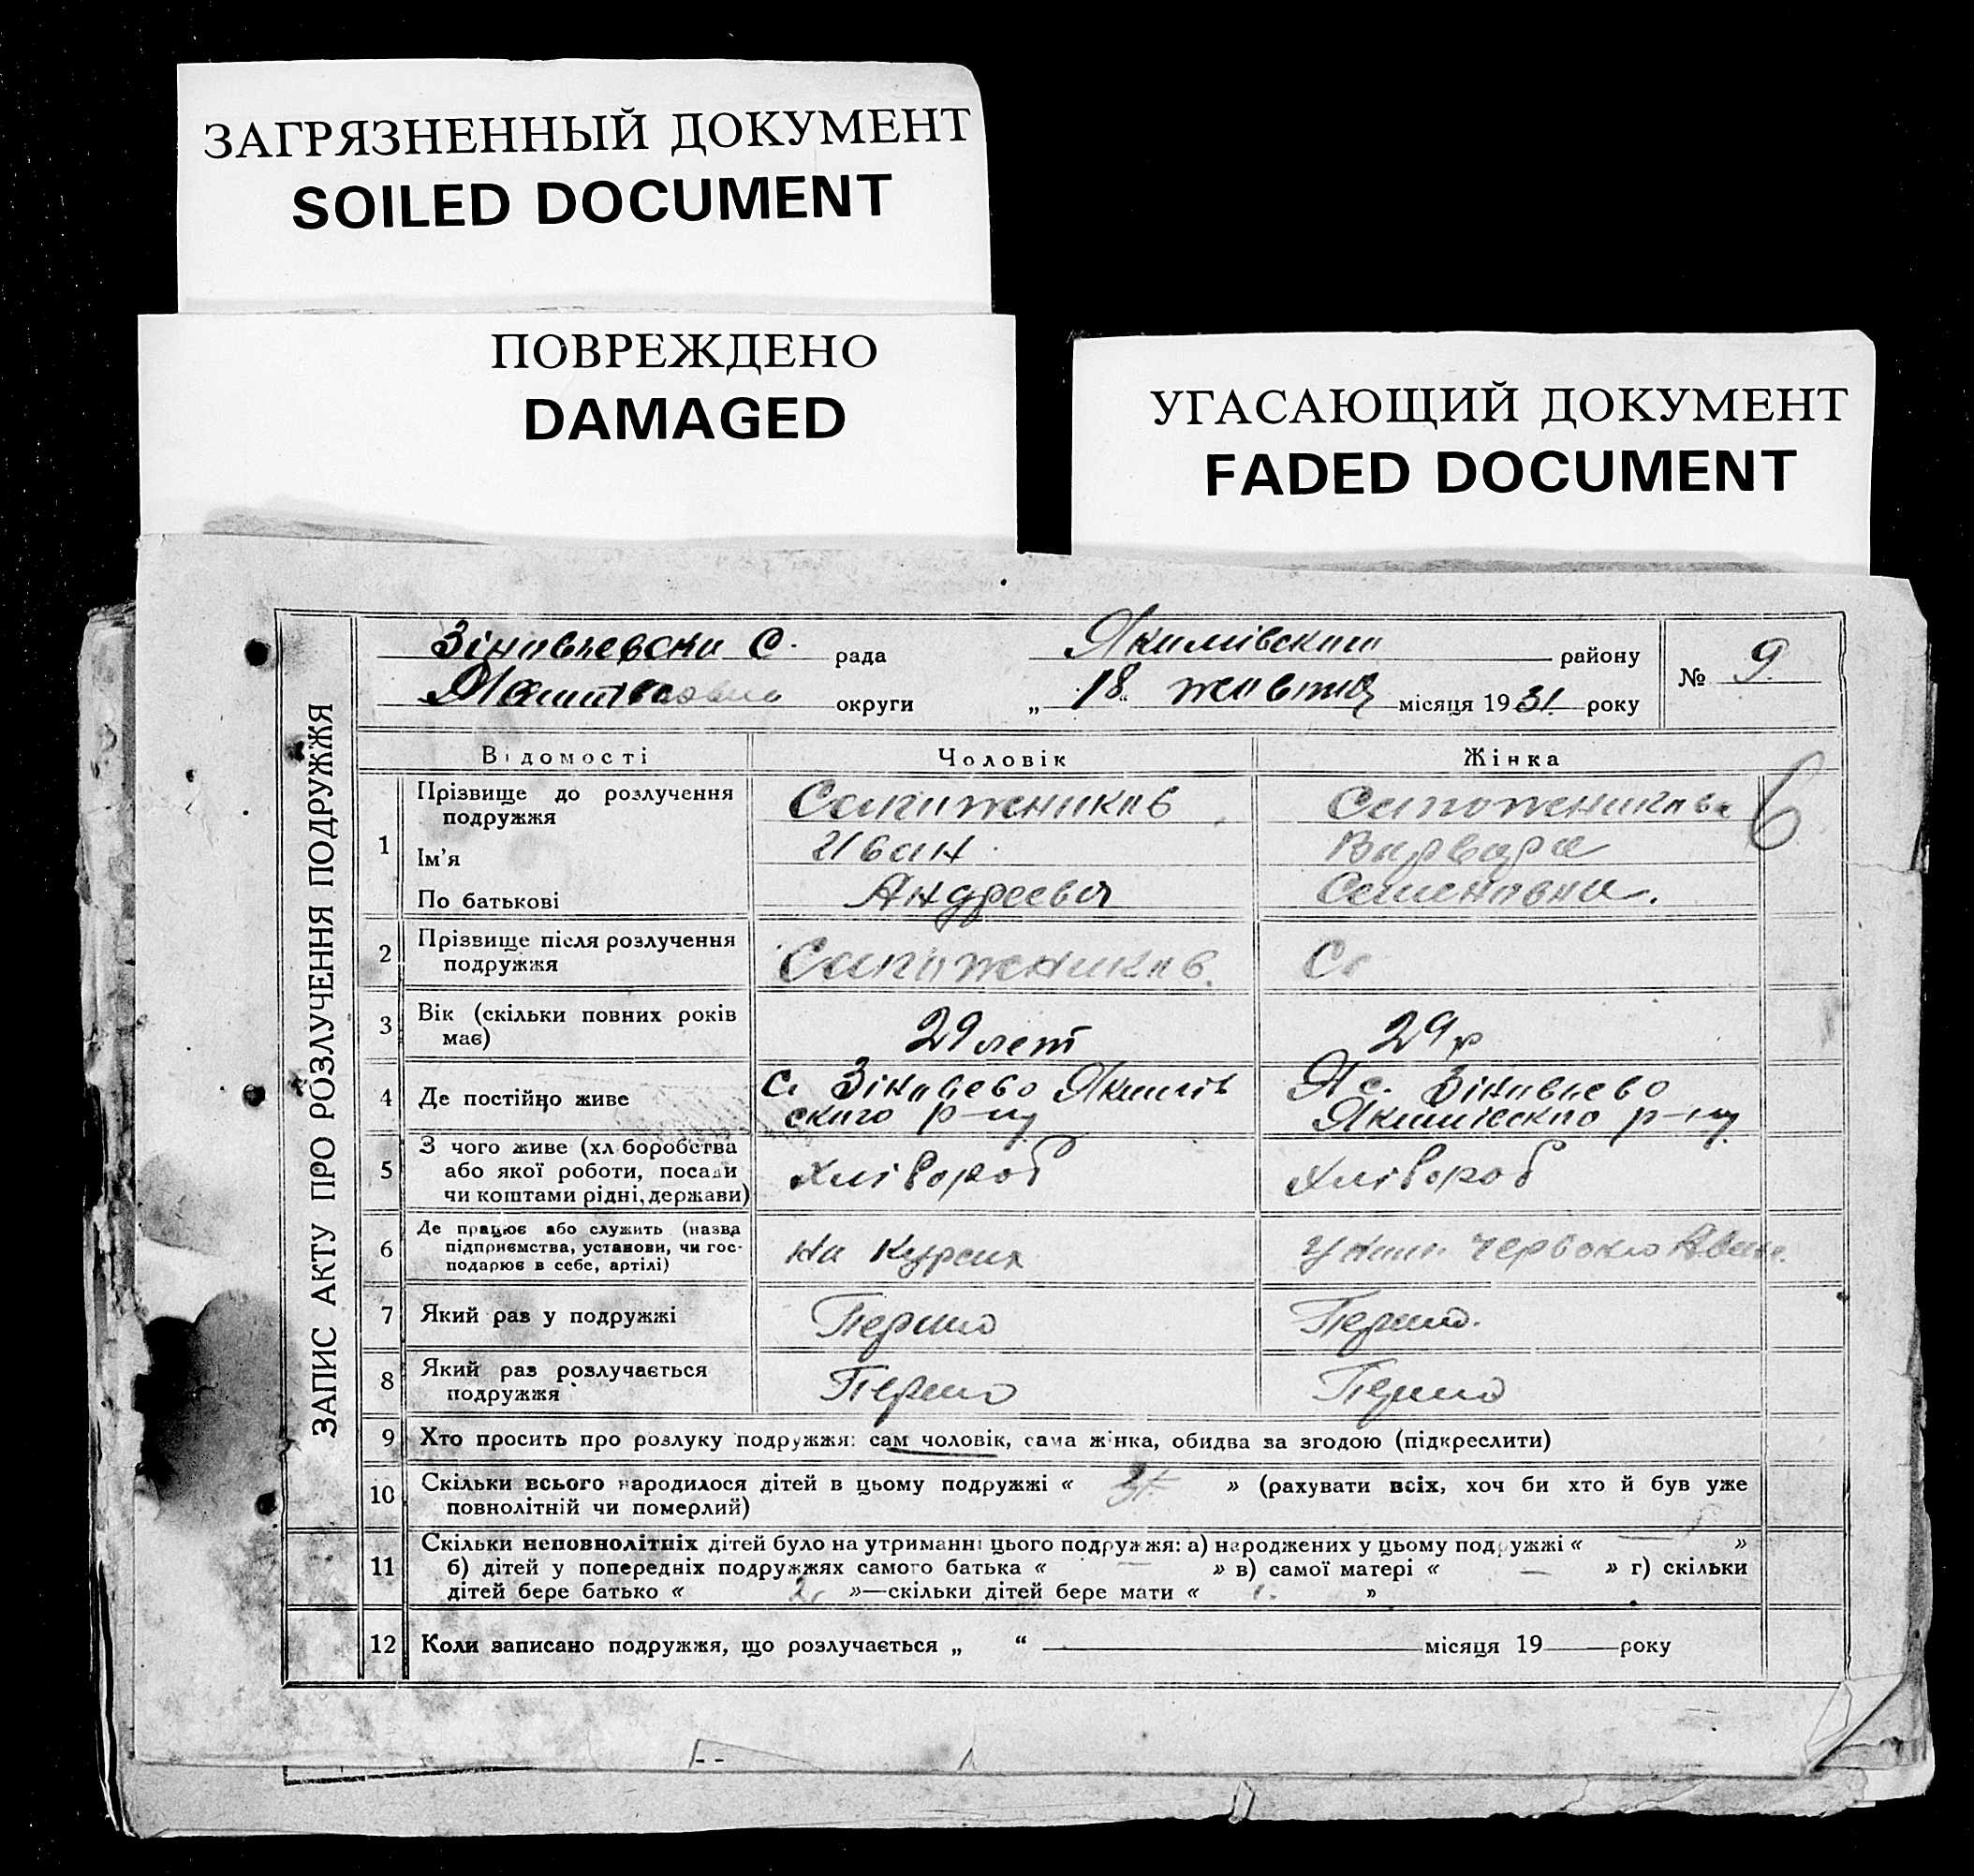 ЗАГРЯЗНЕННЫЙ ДОКУМЕНТ
SOILED DOCUMENT
ПОВРЕЖДЕНО
DAMAGED
УГАСАЮЩИЙ ДОКУМЕНТ
FADED DOCUMENT
ЗАПИС АКТУ ПРО РОЗЛУЧЕННЯ ПОДРУЖЖЯ
Зіновьевска С. рада Якимівського району № 9.
округи „ 18 “ жовтня місяця 1931. року
Відомості Чоловік Жінка
6
1 Прізвище до розлучення подружжя Сапожников Сапожникова
Ім’я Иван Варвара
По батькові Андреевич Семеновна.
2 Прізвище після розлучення подружжя Сапожников.
3 Вік (скільки повних років має) 29 лет 29 р
4 Де постійно живе с. Зіновьево Якимів
ского р-ну
с. Зіновьево
Якимівского р-ну
5 З чого живе (хліборобства або якої роботи, посади чи коштами рідні, держави) Хлібороб Хлібороб
6 Де працює або служить (назва підприємства, установи, чи господарює в себе, артілі) на Курсах червоно
7 Який раз у подружжі Перший Перший.
8 Який раз розлучається подружжя Перший Перший
9 Хто просить про розлуку подружжя: сам чоловік, сама жінка, обидва за згодою (підкреслити)
10 Скільки всього народилося дітей в цьому подружжі « » (рахувати всіх, хоч би хто й був уже
повнолітній чи померлий)
11 Скільки неповнолітніх дітей було на утриманні цього подружжя: а) народжених у цьому подружжі « — »
б) дітей у попередніх подружжях самого батька « — » в) самої матері « — » г) скільки
дітей бере батько « 2. »—скільки дітей бере мати « 1. »
12 Коли записано подружжя, що розлучається „ “ місяця 19 року